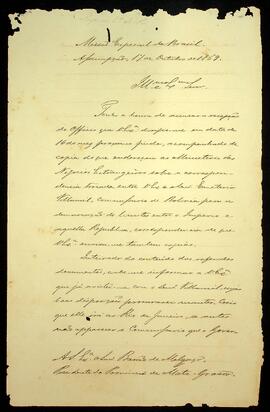 Missão Especial do Brasil
Assumpção, 17 de Outubro de 1869.
Illmo e Exmo Senr
Tenho a honra de accusar a recepção
do Officio que V. Exa. dirigio-me em data de
10 do mez proximo findo, acompanhado de
copia do que endereçou ao Ministerio dos
Negocios Estrangeiros sobre a correspon-
dencia trocada entre V. Ex. e o Snr. Quintin
Villamil, Commissario da Bolivia para a
demarcação de limites entre o Imperio e
aquella Republica, correspondencia de que
V. Exa. enviou-me tambem copias.
Inteirado do conteúdo dos referidos
documentos, onde me informa V. Exa.
que já avistou-me com o Snr. Villamil,
boas disposições
que elle irá ao Rio de Janeiro, se antes
não apparecer a Commissão que o Gover
A S. Exa. o Snr. Barão de Melgaço
Presidente da Provincia de Mato-Grosso